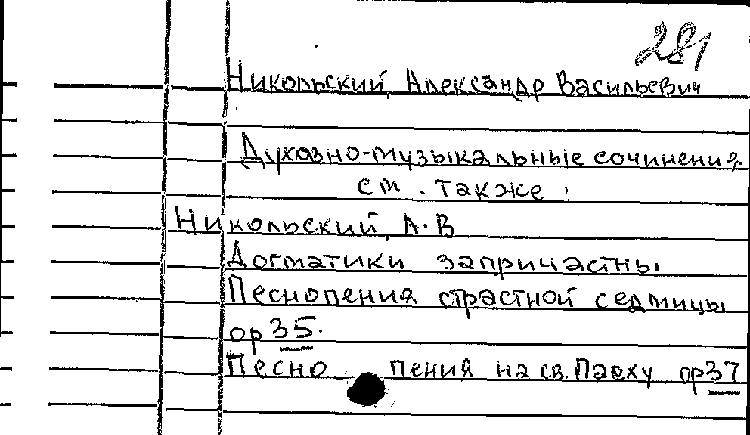 281
Никольский, Александр Васильевич
Духовно-музыкальные сочинения
см. также:
Никольский, А.В
Догматики запричастны.
Песнопения страстной седмицы
ор 35.
Песнопения на св. Пасху ор 37